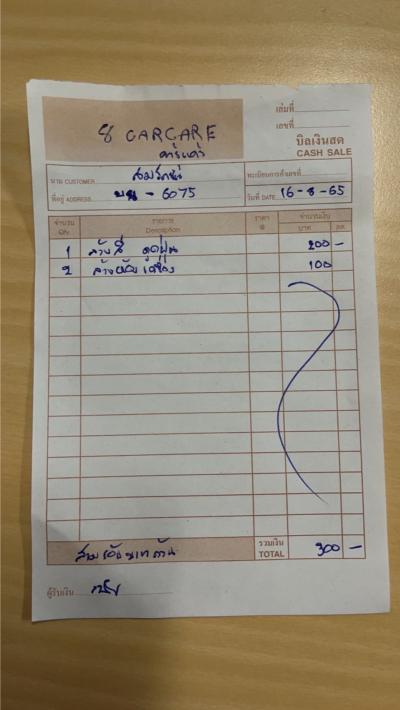 เล่มที่
เลขที่
8 CARCARE
คาร์แคร์
บิลเงินสด
CASH SALE
นาม CUSTOMER สมรักษ์
ทะเบียนการค้าเลขที่
ที่อยู่ ADDRESS - 6075
วันที่ DATE 16-8-65
จำนวน รายการ ราคา จำนวนเงิน
Qty. Description @ บาท สต.
1 ล้างสี ดูดฝุ่น 200 -
2 ล้าง เครื่อง 100
สามร้อยบาทถ้วน รวมเงิน TOTAL 300 -
ผู้รับเงิน